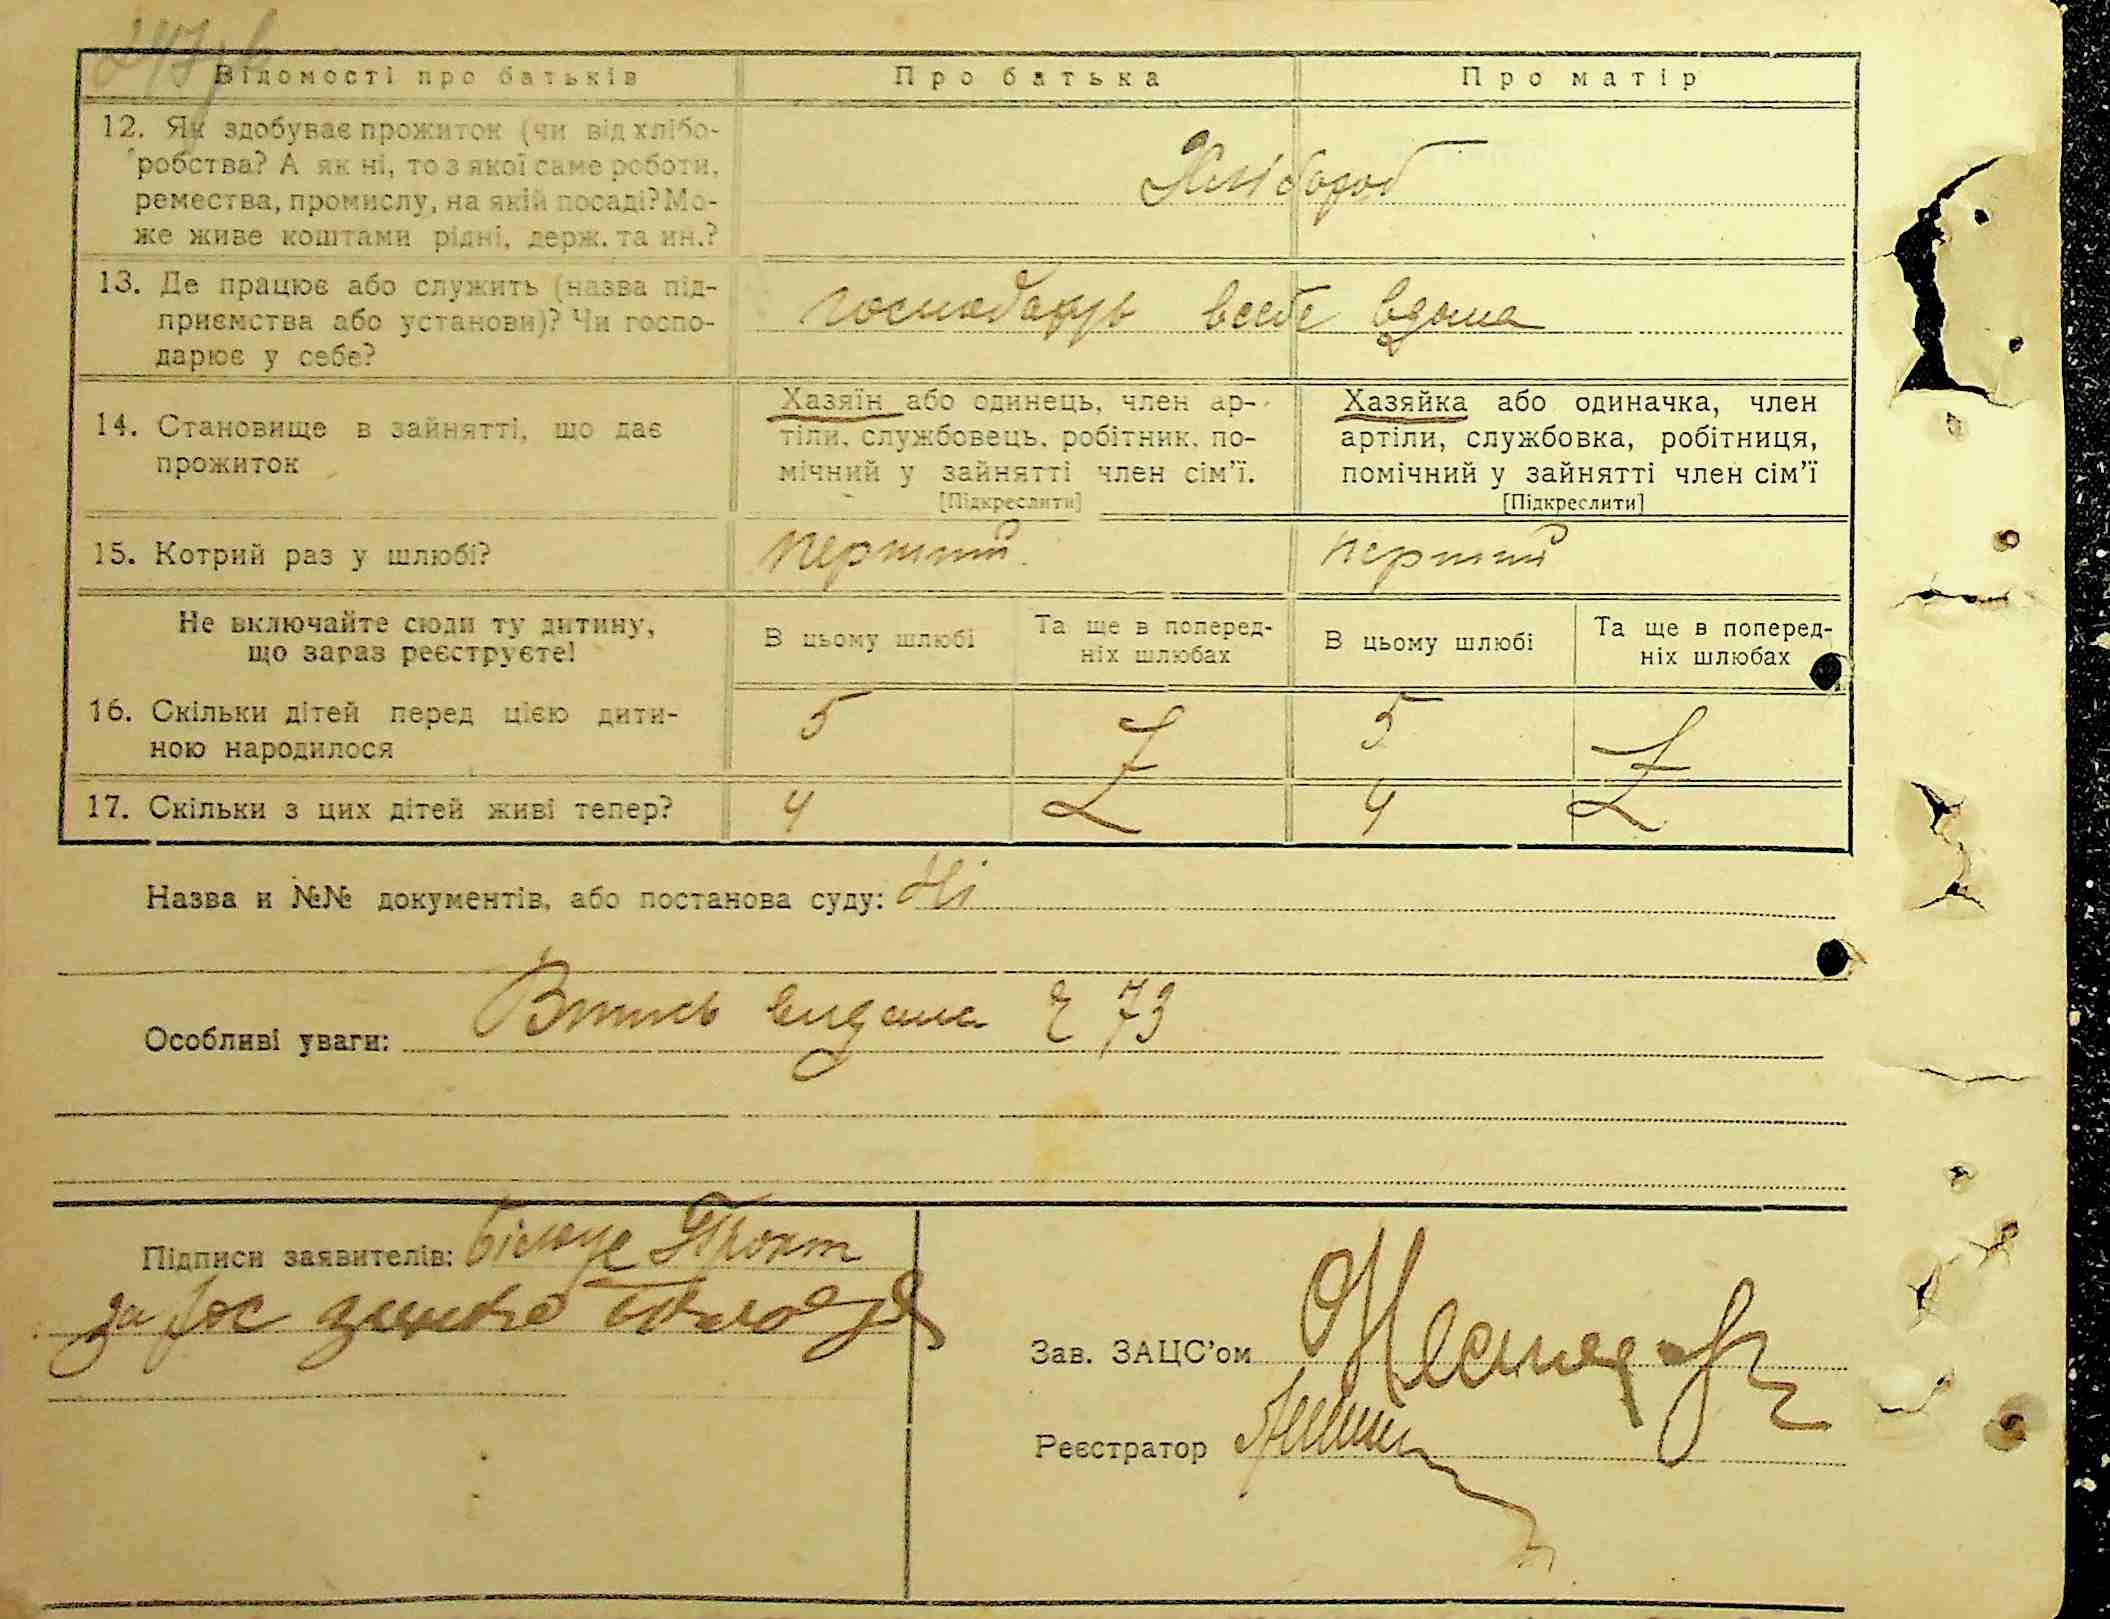 Відомості про батьків
Про батька
Про матір
12. Як здобуває прожиток (чи від хлібо-
робства? А як ні, то з якої саме роботи,
ремества, промислу, на якій посаді? Мо-
же живе коштами рідні, держ. та ин.?
Хлібороб
13. Де працює або служить (назва під-
приємства або установи)? Чи госпо-
дарює у себе?
господарує всебе вдома
14. Становище в зайнятті, що дає
прожиток
Хазяїн або одинець, член ар-
тіли, службовець, робітник, по-
мічний у зайнятті член сім’ї.
[Підкреслити]
Хазяйка або одиначка, член
артіли, службовка, робітниця,
помічний у зайнятті член сім’ї
[Підкреслити]
15. Котрий раз у шлюбі?
перший
перший
Не включайте сюди ту дитину,
що зараз реєструєте!
В цьому шлюбі
Та ще в поперед-
ніх шлюбах
В цьому шлюбі
Та ще в поперед-
ніх шлюбах
16. Скільки дітей перед цією дити-
ною народилося
5
5
17. Скільки з цих дітей живі тепер?
4
4
Назва и №№ документів, або постанова суду: Ні
Особливі уваги: Впись видана 73
Підписи заявителів:
Зав. ЗАЦС’ом
Реєстратор